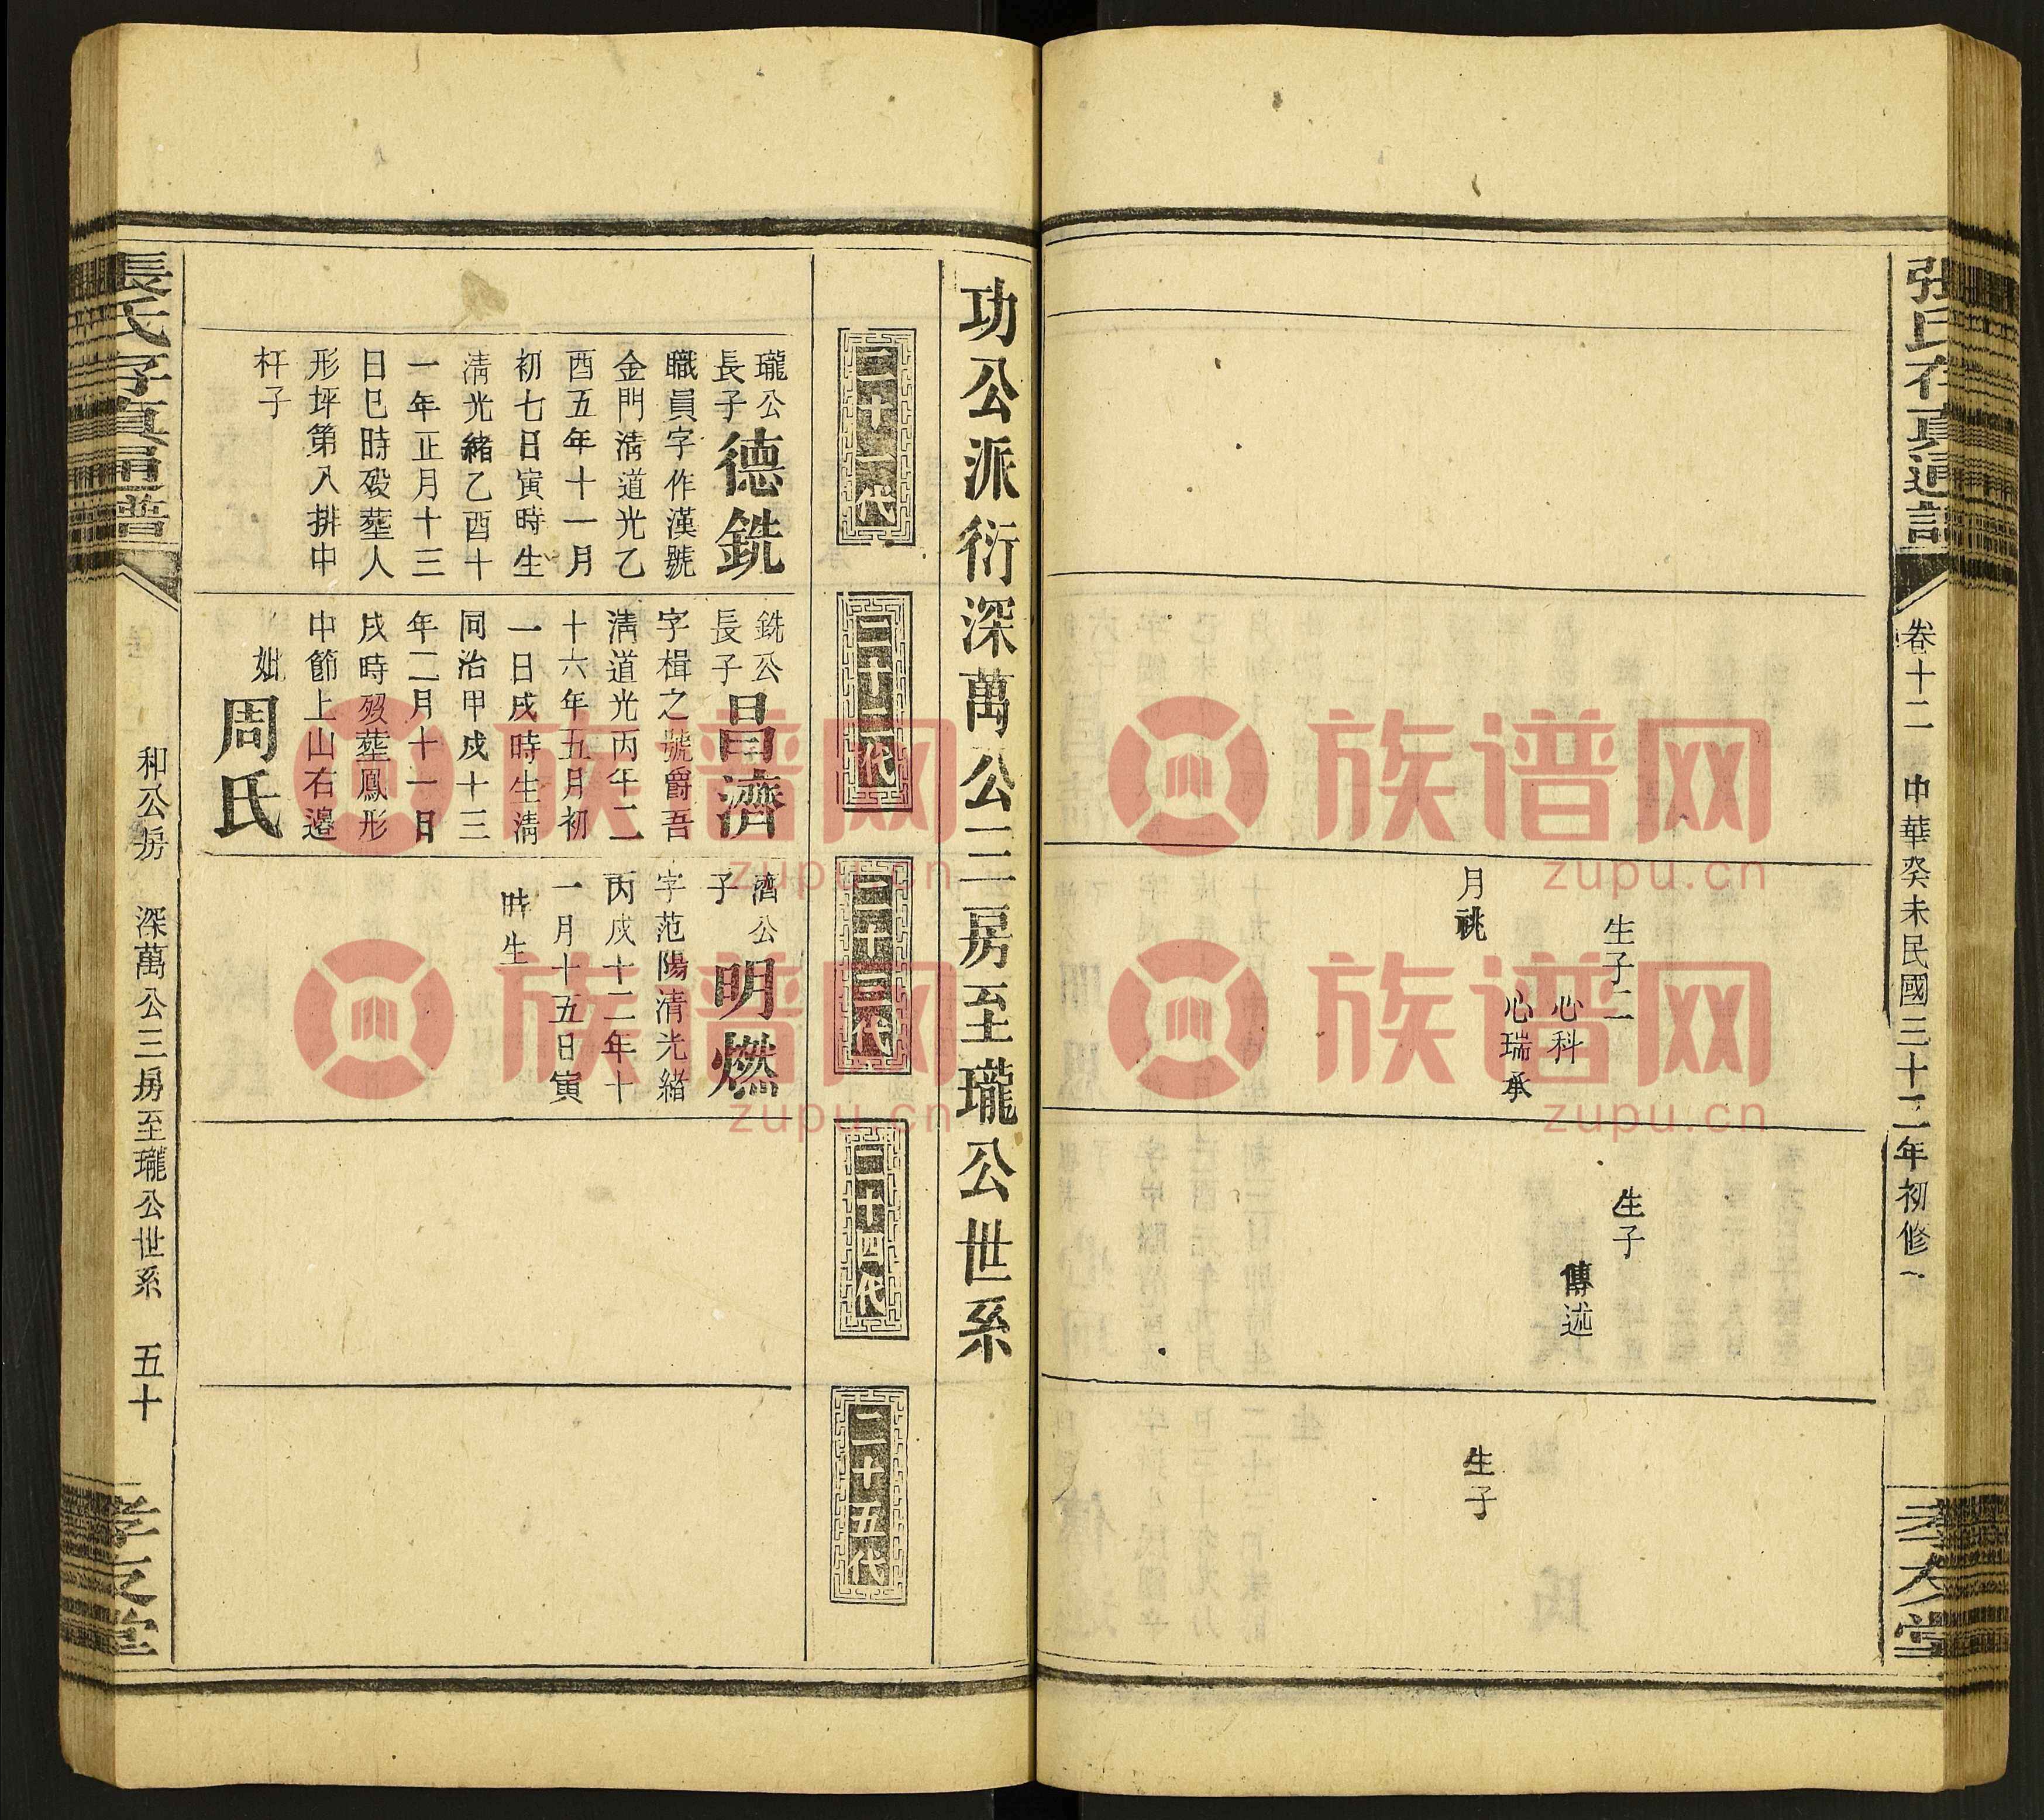 張氏存真通譜
卷十二
中華癸未民國三十二年初修
孝友堂
生子二
心科
心瑞承
月祧
生子
傳述
生子
功公派衍深萬公三房至瓏公世系
二十一代
二十二代
二十三代
二十四代
二十五代
瓏公
長子
德銑
職員字作漢號
金門清道光乙
酉五年十一月
初七日寅時生
清光緒乙酉十
一年正月十三
日巳時歿塟人
形坪第入排中
杆子
銑公
長子
昌濟
字楫之號爵吾
清道光丙午二
十六年五月初
一日戌時生清
同治甲戌十三
年二月十一日
戌時歿塟鳳形
中節上山右邊
妣
周氏
濟公
子
明燃
字范陽清光緒
丙戌十二年十
一月十五日寅
時生
張氏存真通譜
和公房
深萬公三房至瓏公世系
五十
孝友堂
族谱网
zupu.cn
族谱网
zupu.cn
族谱网
zupu.cn
族谱网
zupu.cn